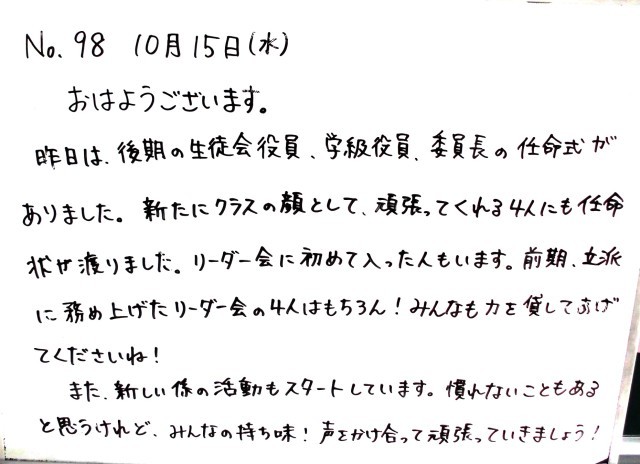 No.98 10月15日(水)
おはようございます。
昨日は、後期の生徒会役員、学級役員、委員長の任命式が
ありました。新たにクラスの顔として、頑張ってくれる4人にも任命
状が渡りました。リーダー会に初めて入った人もいます。前期、立派
に務め上げたリーダー会の4人はもちろん!みんなも力を貸してあげ
てくださいね!
また、新しい係の活動もスタートしています。慣れないこともある
と思うけれど、みんなの持ち味!声をかけ合って頑張っていきましょう!